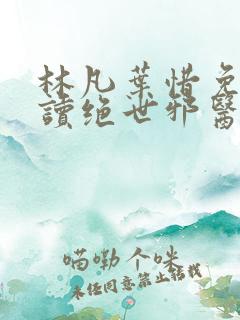 林凡葉惜免
讀绝世邪醫
喵嘞个咪
未经同意禁止转载